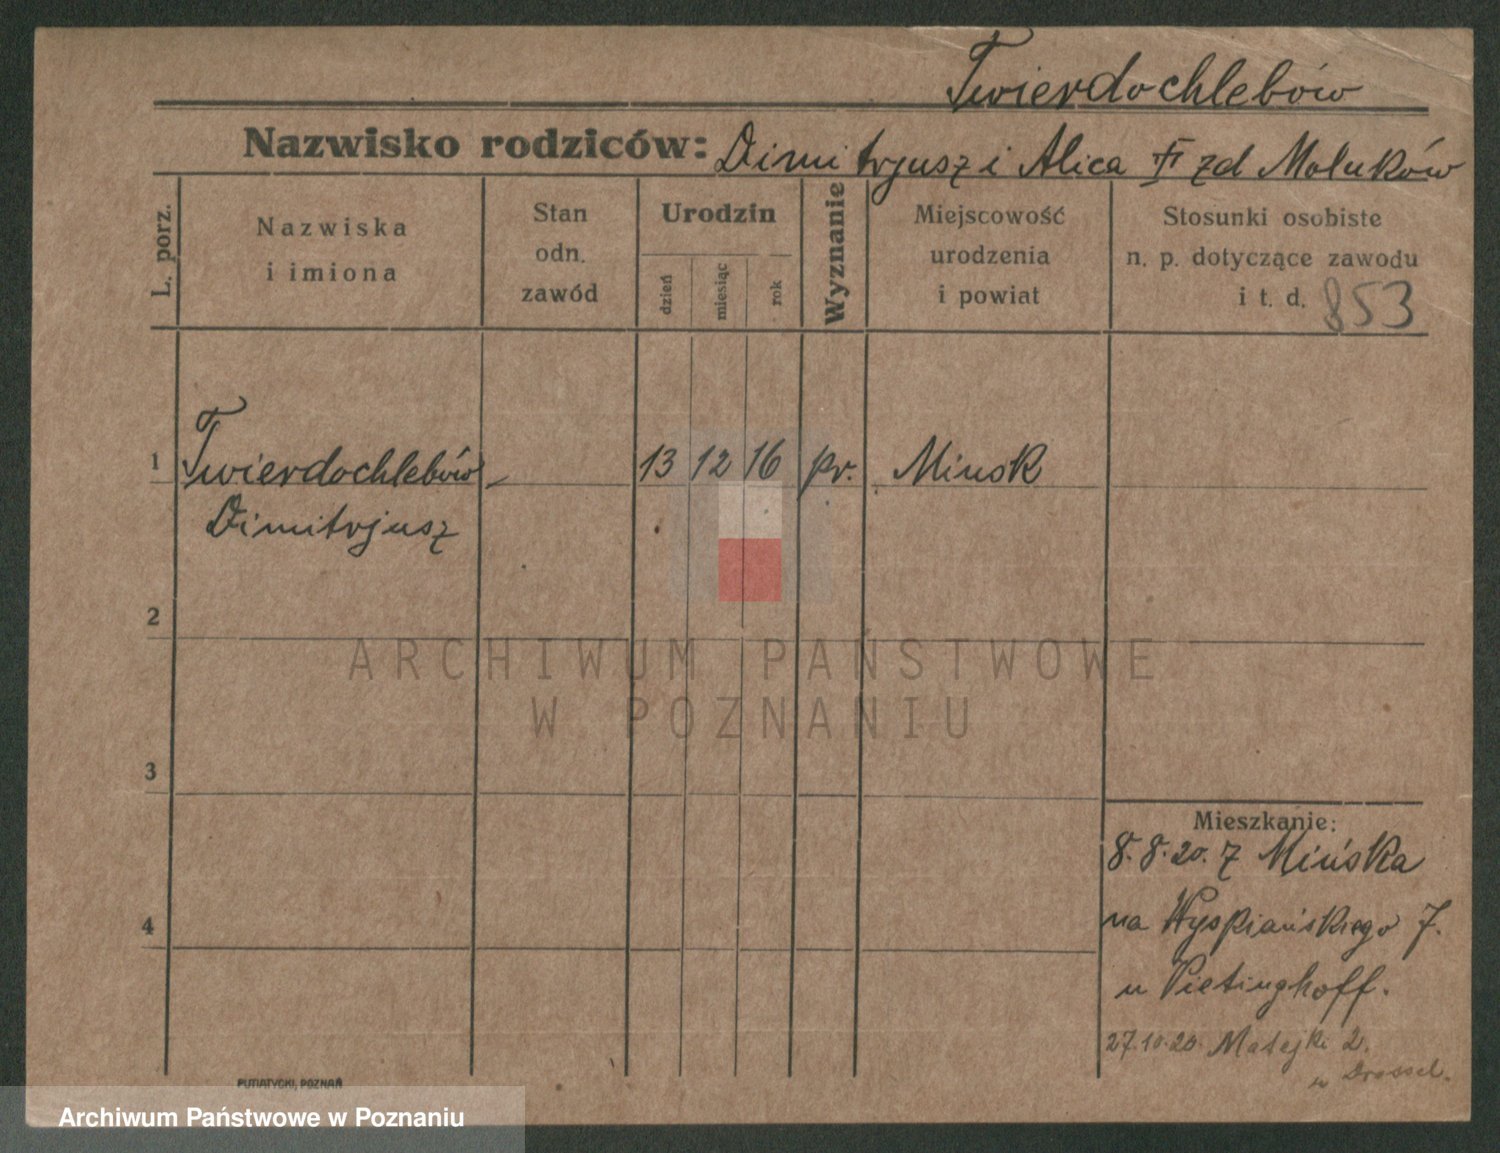 Twierdochlebów
Nazwisko rodziców: Dimitrjusz i Alica zd Moluków
L. porz.
Nazwiska
i imiona
Stan
odn.
zawód
Urodzin
dzień
miesiąc
rok
Wyznanie
Miejscowość
urodzenia
i powiat
Stosunki osobiste
n. p. dotyczące zawodu
i t. d. 853
1 Twierdochlebów - 13 12 16 pr. Minsk
Dimitrjusz
2
ARCHIWUM PAŃSTWOWE
W POZNANIU
3
Mieszkanie:
8.8.20. z Mińska
4
na Wyspiańskiego 7.
u Vietinghoff.
27.10.20. Matejki 2.
u Drossel.
PUTIATYCKI, POZNAŃ
Archiwum Państwowe w Poznaniu